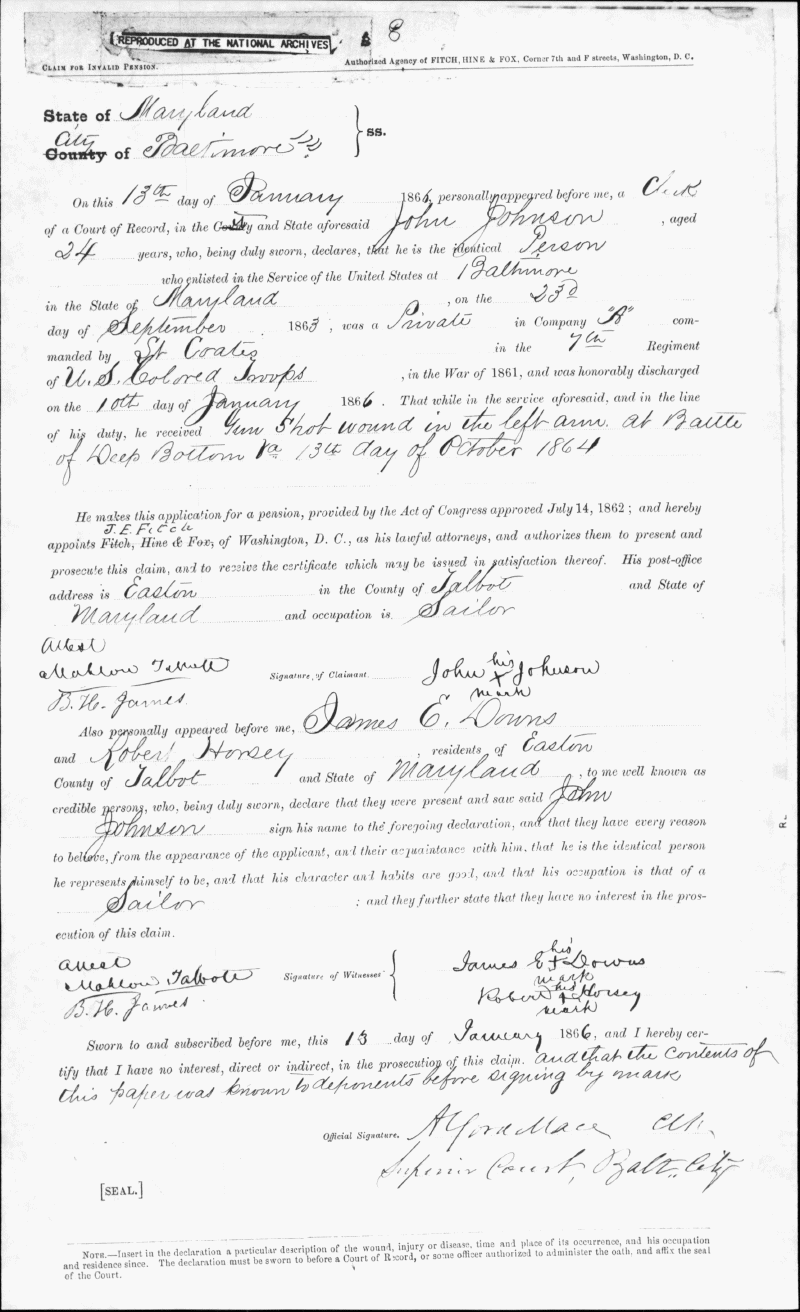 REPRODUCED AT THE NATIONAL ARCHIVES
8
CLAIM FOR INVALID PENSION.
Authorized Agency of FITCH, HINE & FOX, Corner 7th and F streets, Washington, D. C.
State of Maryland
City
County of Baltimore } ss.
On this 13th day of January 1866, personally appeared before me, a Clerk
of a Court of Record, in the County and State aforesaid John Johnson, aged
24 years, who, being duly sworn, declares, that he is the identical Person
who enlisted in the Service of the United States at Baltimore
in the State of Maryland, on the 23d
day of September 1863, was a Private in Company "A" com-
manded by Lt Coates in the 7th Regiment
of U.S. Colored Troops, in the War of 1861, and was honorably discharged
on the 10th day of January 1866. That while in the service aforesaid, and in the line
of his duty, he received Gun Shot wound in the left arm. at Battle
of Deep Bottom Va 13th day of October 1864
He makes this application for a pension, provided by the Act of Congress approved July 14, 1862; and hereby
J. E. Fitch
appoints Fitch, Hine & Fox, of Washington, D. C., as his lawful attorneys, and authorizes them to present and
prosecute this claim, and to receive the certificate which may be issued in satisfaction thereof. His post-office
address is Easton in the County of Talbot and State of
Maryland and occupation is Sailor
Attest
Mahlow Talbott
B. H. James
Signature of Claimant.
John his + mark Johnson
Also personally appeared before me, James E. Downs
and Robert Horsey, residents of Easton
County of Talbot and State of Maryland, to me well known as
credible persons, who, being duly sworn, declare that they were present and saw said John
Johnson sign his name to the foregoing declaration, and that they have every reason
to believe, from the appearance of the applicant, and their acquaintance with him, that he is the identical person
he represents himself to be, and that his character and habits are good, and that his occupation is that of a
Sailor; and they further state that they have no interest in the pros-
ecution of this claim.
Attest
Mahlow Talbott
B. H. James
Signature of Witnesses {
James E his + mark Downs
Robert his + mark Horsey
Sworn to and subscribed before me, this 13 day of January 1866, and I hereby cer-
tify that I have no interest, direct or indirect, in the prosecution of this claim. and that the contents of
this paper was known to deponents before signing by mark
Official Signature. Alford Mace Clk.
Superior Court, Balt., City
[SEAL.]
NOTE.—Insert in the declaration a particular description of the wound, injury or disease, time and place of its occurrence, and his occupation
and residence since. The declaration must be sworn to before a Court of Record, or some officer authorized to administer the oath, and affix the seal
of the Court.